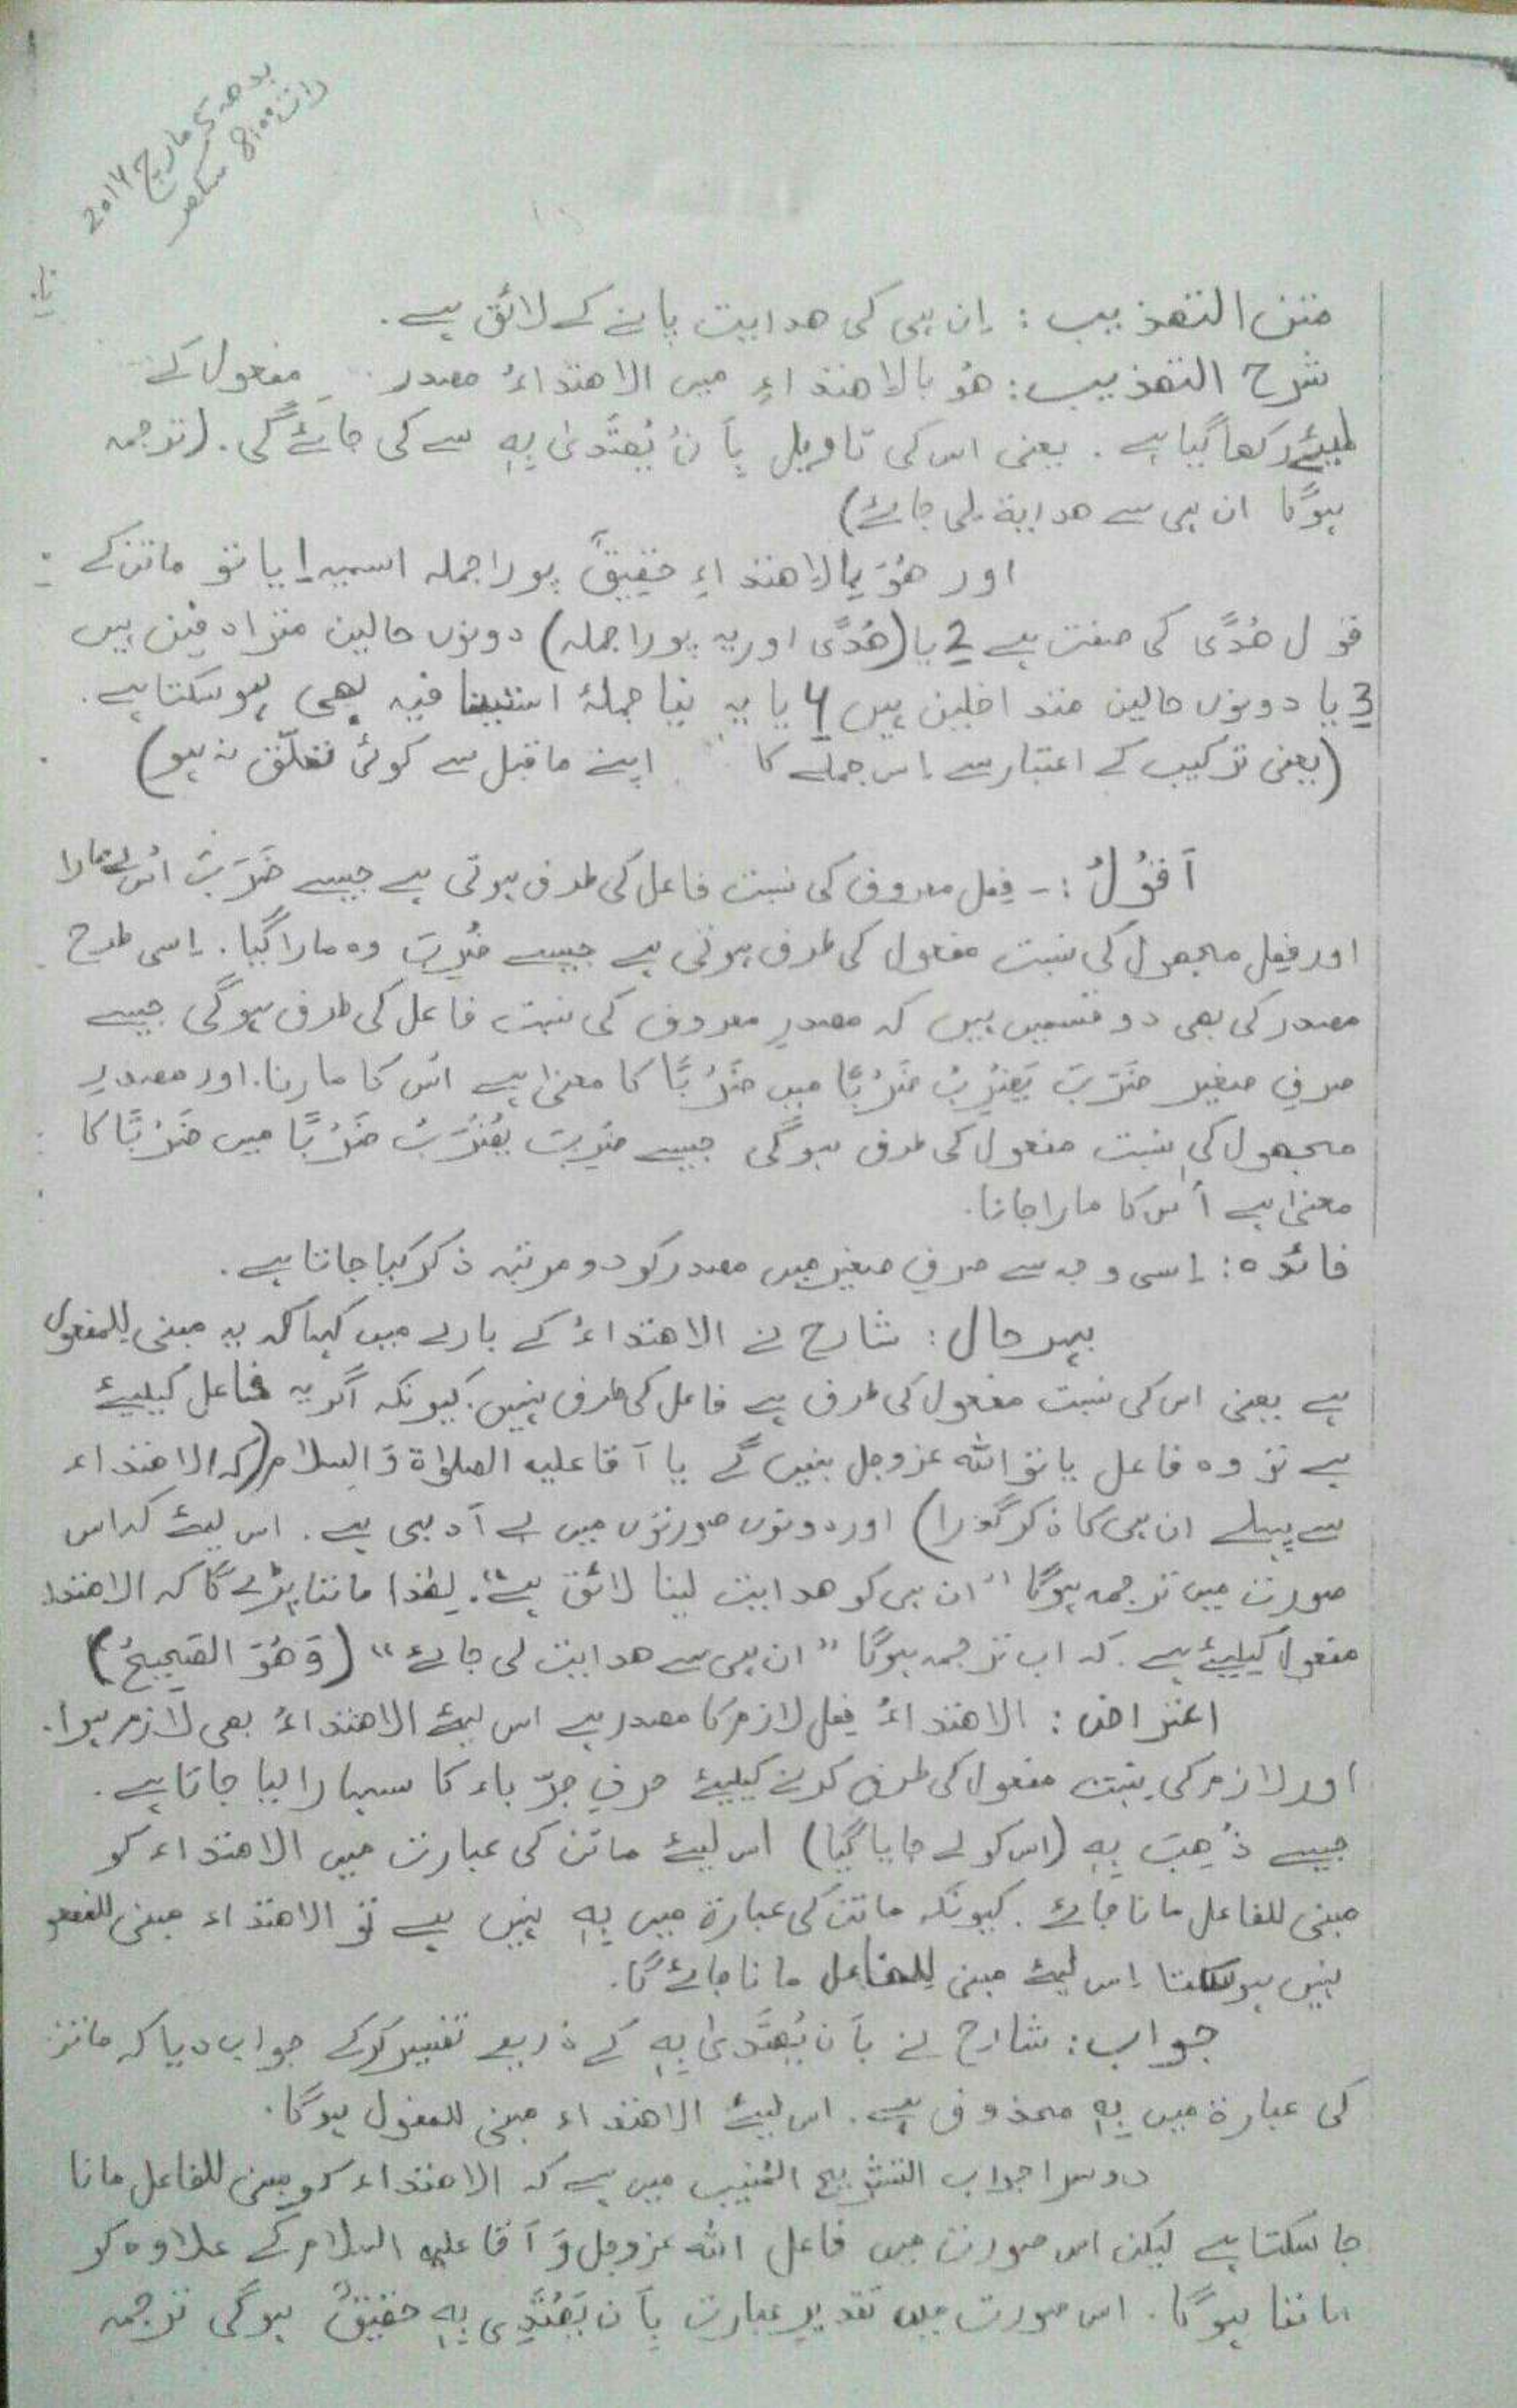 بدھ 5 مارچ 2014
رات 8:00 سکھر
متن التھذیب: اِن ہی کی ھدایت پانے کے لائق ہے.
شرح التھذیب: ھُو بالاھتداءِ میں الاھتداءُ مصدر مفعول کے
لیئے رکھا گیا ہے. یعنی اس کی تاویل بِاَنْ یُھْتَدٰی بِہٖ سے کی جائے گی. (ترجمہ
ہوگا ان ہی سے ھدایۃ لی جائے)
اور ھُوَ بِالاِھتداءِ حَقِیْقٌ پورا جملہ اسمیہ 1 یا تو ماتن کے
قول ھُدًی کی صفت ہے 2 یا (ھُدًی اور یہ پورا جملہ) دونوں حالین مترادفین ہیں
3 یا دونوں حالین متداخلین ہیں 4 یا یہ نیا جملۂ استینافیہ بھی ہوسکتا ہے.
(یعنی ترکیب کے اعتبار سے اِس جملے کا اپنے ماقبل سے کوئی تعلّق نہ ہو)
اَقُوْلُ :- فِعل معروف کی نسبت فاعل کی طرف ہوتی ہے جیسے ضَرَبَ اُس نے مارا
اور فِعل مجھول کی نسبت مفعول کی طرف ہوتی ہے جیسے ضُرِبَ وہ مارا گیا. اِسی طرح
مصدر کی بھی دو قسمیں ہیں کہ مصدرِ معروف کی نسبت فاعل کی طرف ہوگی جیسے
صرفِ صغیر ضَرَبَ یَضْرِبُ ضَرْبًا میں ضَرْبًا کا معنیٰ ہے اُس کا مارنا. اور مصدرِ
مجھول کی نسبت مفعول کی طرف ہوگی جیسے ضُرِبَ یُضْرَبُ ضَرْبًا میں ضَرْبًا کا
معنیٰ ہے اُس کا مارا جانا.
فائدہ: اِسی وجہ سے صرفِ صغیر میں مصدر کو دو مرتبہ ذکر کیا جاتا ہے.
بہرحال: شارح نے الاھتداءُ کے بارے میں کہا کہ یہ مبنی لِلمفعول
ہے یعنی اس کی نسبت مفعول کی طرف ہے فاعل کی طرف نہیں. کیونکہ اگر یہ فاعل کیلیئے
ہے تو وہ فاعل یا تو اللہ عزوجل بنیں گے یا آقا علیہ الصلوٰۃ وَالسلام (کہ الاھتداء
سے پہلے ان ہی کا ذکر گذرا) اور دونوں صورتوں میں بے اَدبی ہے. اس لیئے کہ اس
صورت میں ترجمہ ہوگا "ان ہی کو ھدایت لینا لائق ہے". لِھٰذا ماننا پڑے گا کہ الاھتداء
مفعول کیلیئے ہے. کہ اب ترجمہ ہوگا "ان ہی سے ھدایت لی جائے" (وَھُوَ الصَحِیحُ)
اعتراض: الاھتداءُ فِعل لازم کا مصدر ہے اس لیئے الاھتداءُ بھی لازم ہوا.
اور لازم کی نسبت مفعول کی طرف کرنے کیلیئے حرفِ جرّ باء کا سہارا لیا جاتا ہے.
جیسے ذُھِبَ بِہٖ (اس کو لے جایا گیا) اس لیئے ماتن کی عبارت میں الاھتداء کو
مبنی للفاعل مانا جائے. کیونکہ ماتن کی عبارۃ میں بِہٖ نہیں ہے تو الاھتداء مبنی للمفعو
نہیں ہوسکتا اِس لیئے مبنی لِلفاعل مانا جائے گا.
جواب: شارح نے بِاَن یُھْتَدٰی بِہٖ کے ذریعے تفسیر کرکے جواب دیا کہ ماتن
کی عبارۃ میں بِہٖ محذوف ہے. اس لیئے الاھتداء مبنی للمفعول ہوگا.
دوسرا جواب التشریح المُنیب میں ہے کہ الاھتداء کو مبنی للفاعل مانا
جا سکتا ہے لیکن اس صورت میں فاعل اللہ عزوجل وَ آقا علیہ السلام کے علاوہ کو
ماننا ہوگا. اس صورت میں تقدیرِ عبارت بِاَن یَھْتَدِی بِہٖ حقیقٌ ہوگی ترجمہ